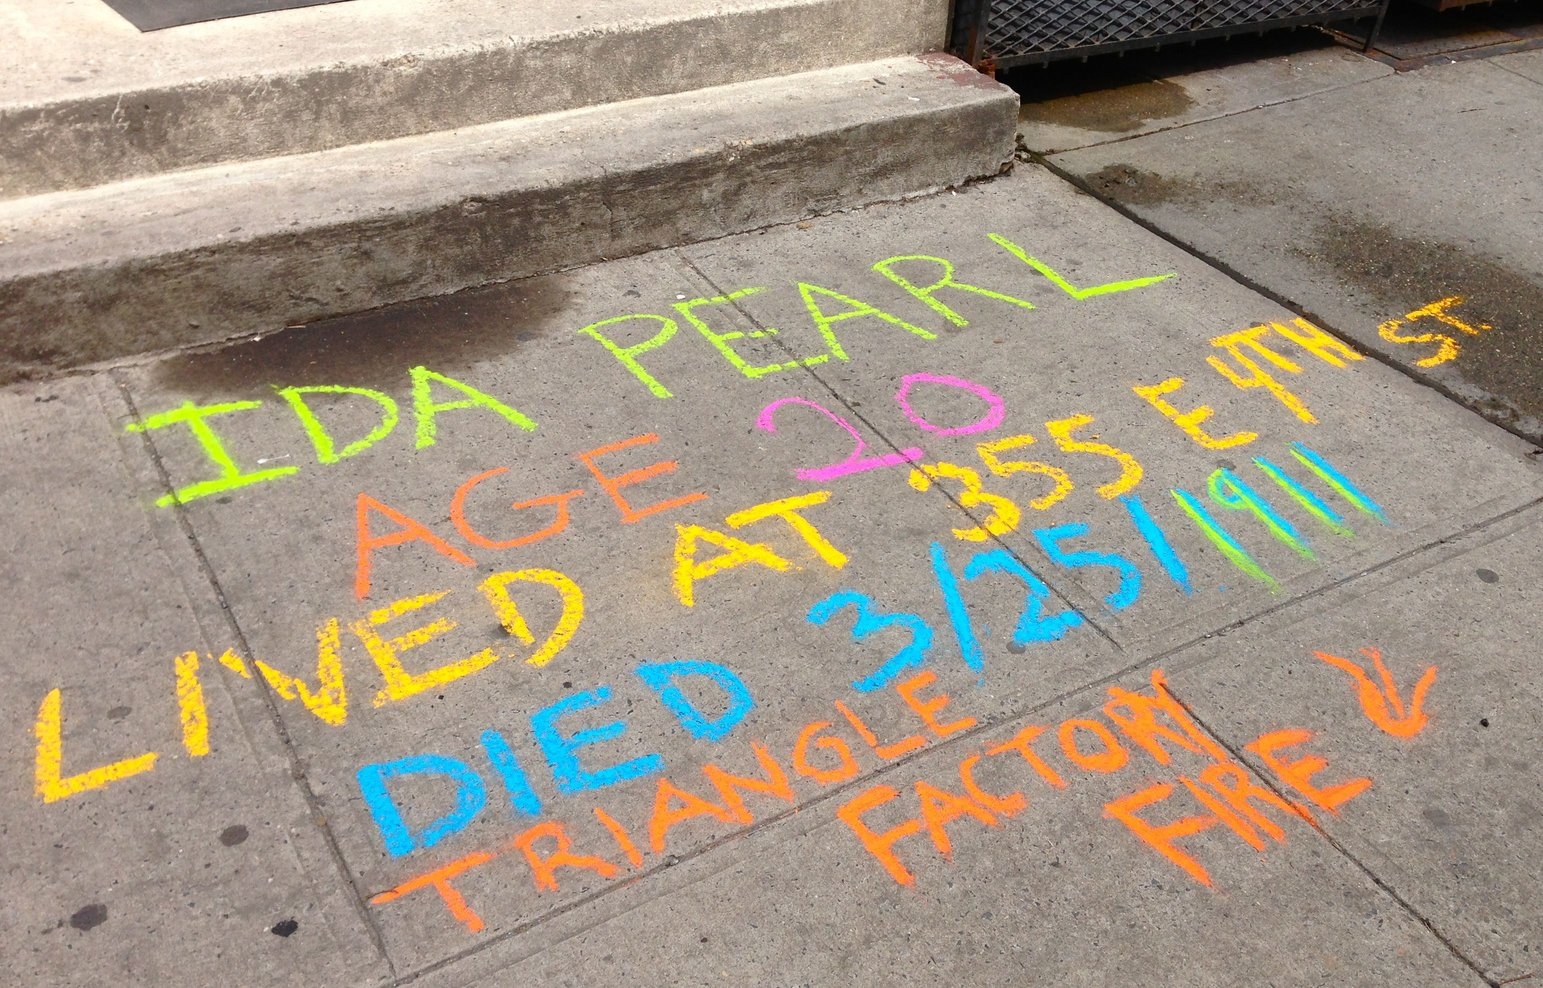 IDA PEARL
AGE 20
LIVED AT 355 E 4TH ST.
DIED 3/25/1911
TRIANGLE
FACTORY
FIRE